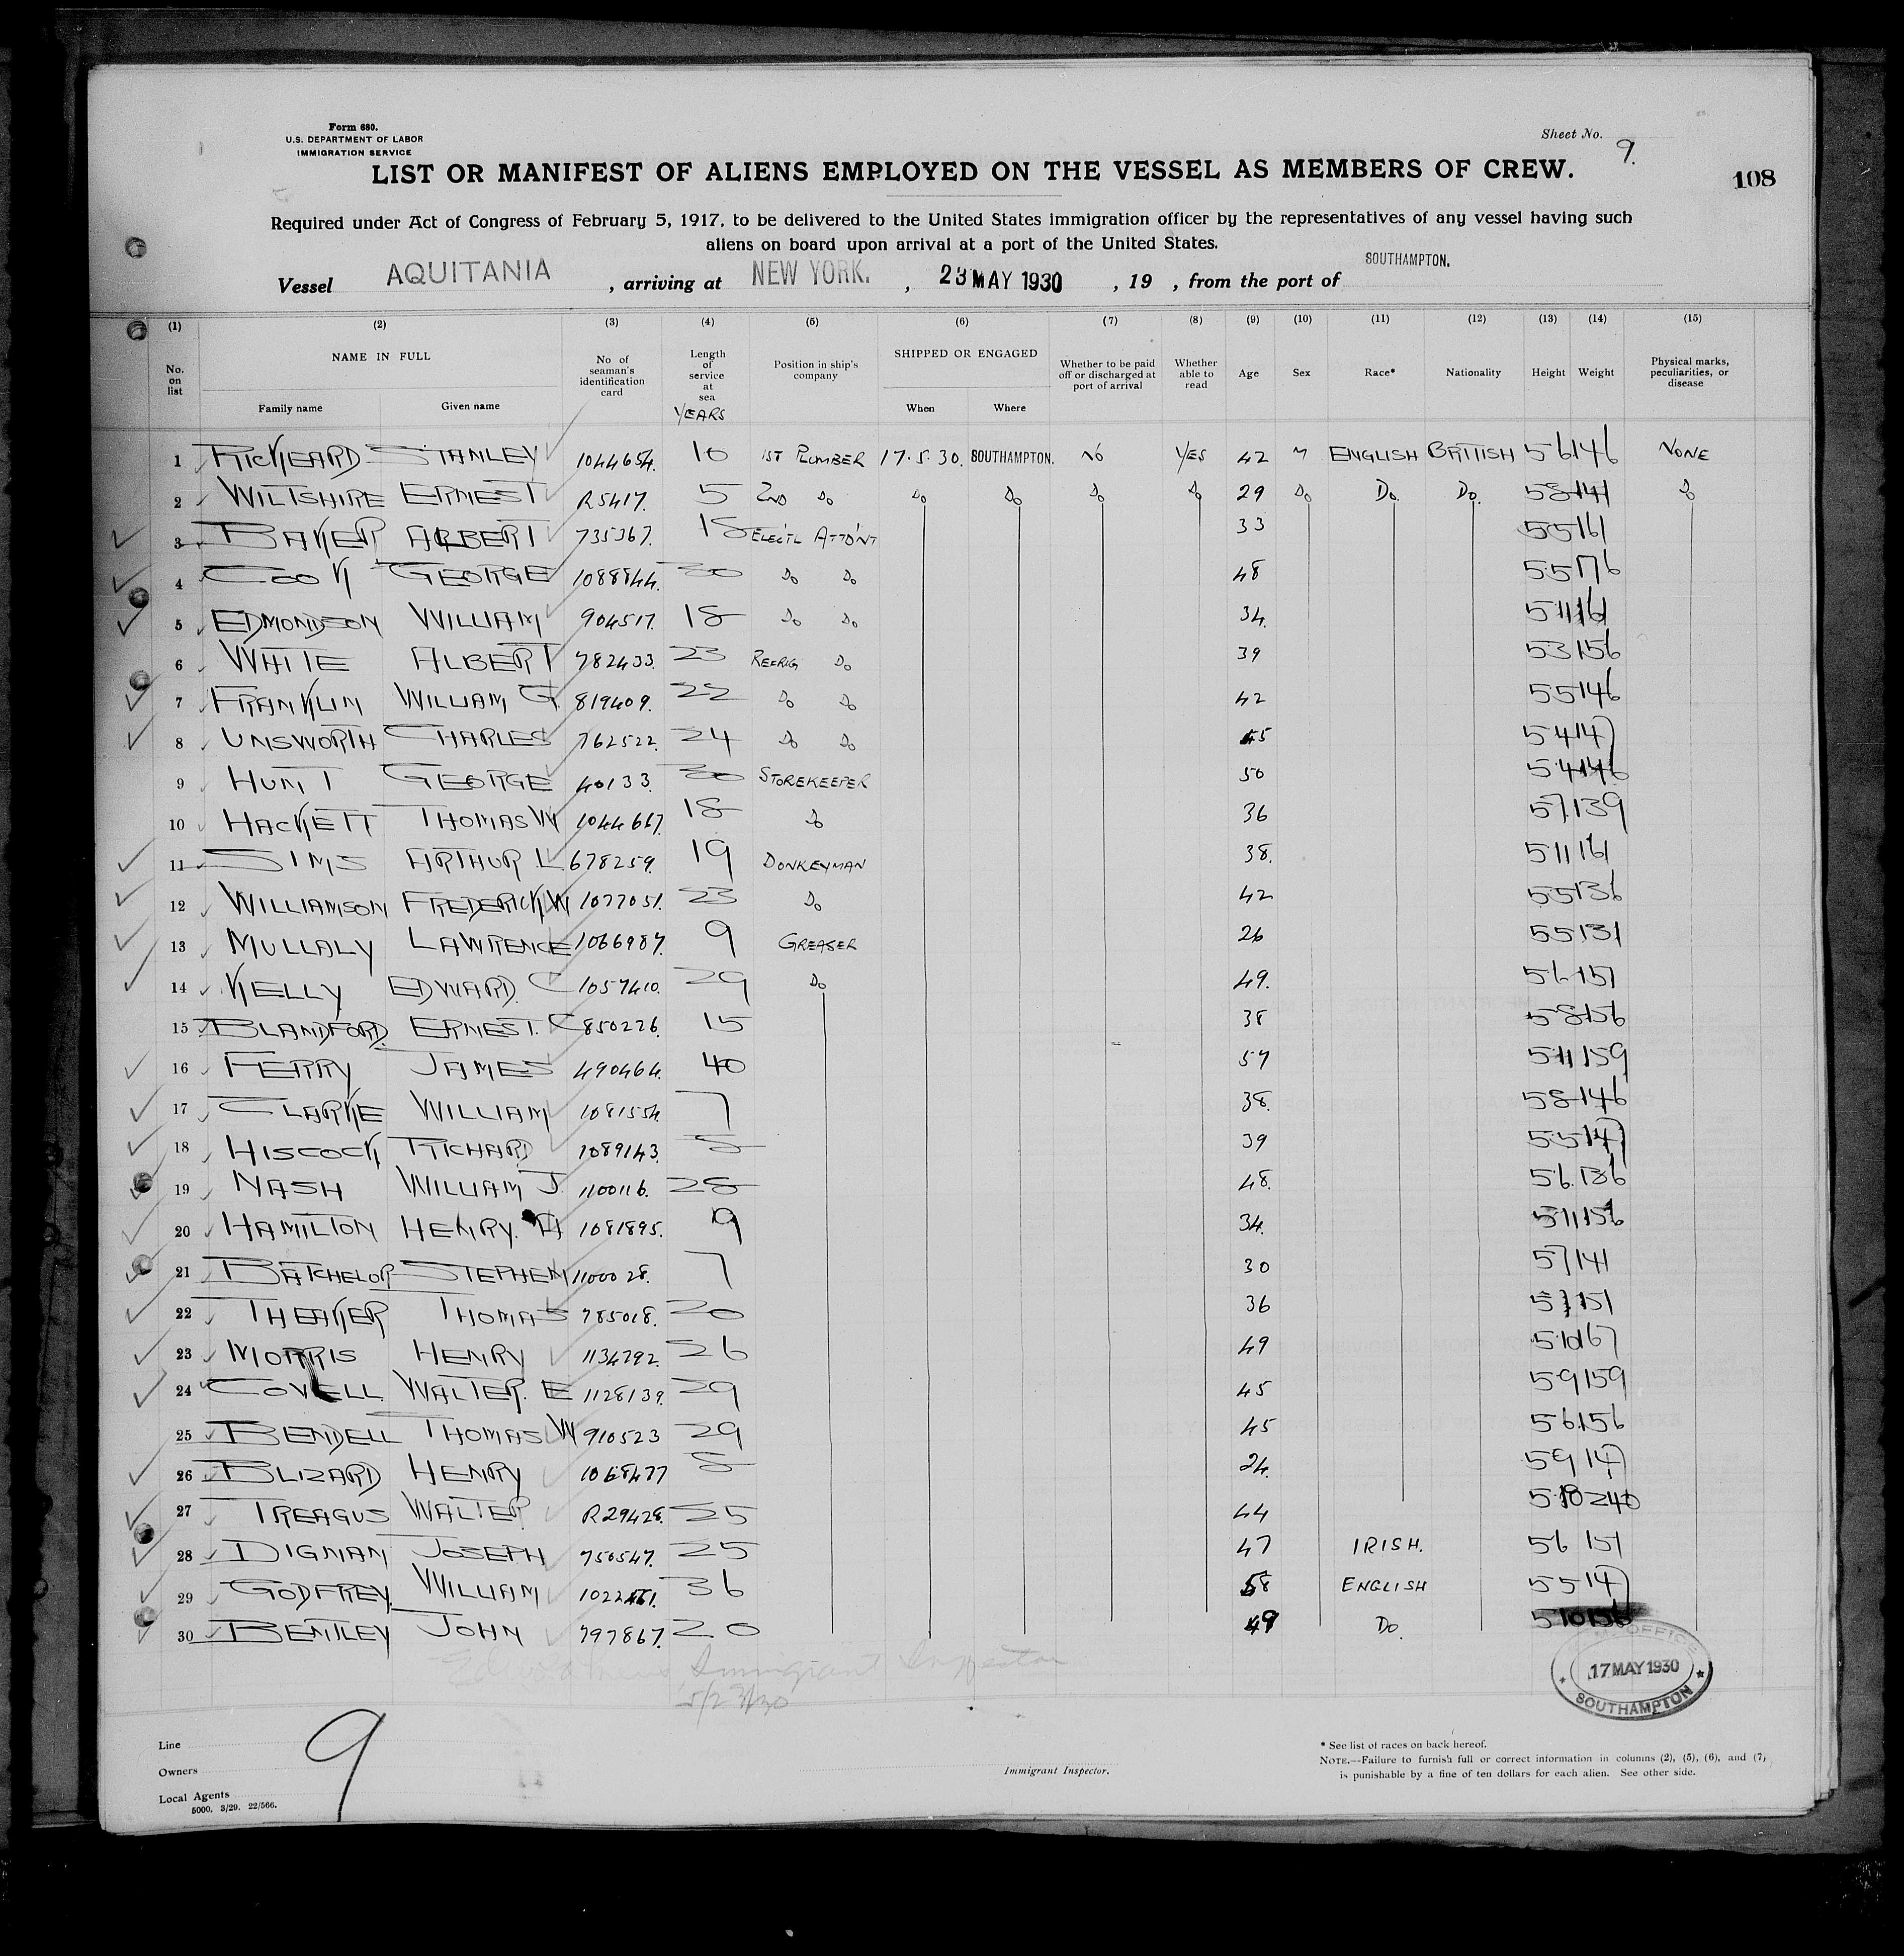 Form 680.
U.S. DEPARTMENT OF LABOR
IMMIGRATION SERVICE
Sheet No. 9.
LIST OR MANIFEST OF ALIENS EMPLOYED ON THE VESSEL AS MEMBERS OF CREW.
108
Required under Act of Congress of February 5, 1917, to be delivered to the United States immigration officer by the representatives of any vessel having such
aliens on board upon arrival at a port of the United States.
Vessel AQUITANIA , arriving at NEW YORK. , 23 MAY 1930 , 19 , from the port of SOUTHAMPTON.
(1) (2) (3) (4) (5) (6) (7) (8) (9) (10) (11) (12) (13) (14) (15)
No. on list NAME IN FULL Family name Given name No of seaman's identification card Length of service at sea YEARS Position in ship's company SHIPPED OR ENGAGED When Where Whether to be paid off or discharged at port of arrival Whether able to read Age Sex Race* Nationality Height Weight Physical marks, peculiarities, or disease
1 RICKEARD STANLEY 1044654. 10 1ST PLUMBER 17.5.30. SOUTHAMPTON. NO YES 42 M ENGLISH BRITISH 56 146 NONE
2 WILTSHIRE ERNEST R5417. 5 2ND Do Do Do Do Do 29 Do Do. Do. 58 141 Do
3 BAKER ALBERT 735367. 18 ELECT'L ATTD'NT 33 55 161
4 COOK GEORGE 1088844. 30 Do Do 48 55 176
5 EDMONDSON WILLIAM 904517. 18 Do Do 34. 511 161
6 WHITE ALBERT 782433. 23 REFRIG Do 39 53 156
7 FRANKLIN WILLIAM G. 819409. 22 Do Do 42 55 146
8 UNSWORTH CHARLES 762522. 24 Do Do 45 54 147
9 HUNT GEORGE 40133. 30 STOREKEEPER 50 54 146
10 HACKETT THOMAS W 1044667. 18 Do 36 57. 139
11 SIMS ARTHUR L 678259. 19 DONKEYMAN 38. 511 161
12 WILLIAMSON FREDERICK W 1077051. 23 Do 42 55 136
13 MULLALY LAWRENCE 1066987. 9 GREASER 26 55 131
14 KELLY EDWARD. C 1057410. 29 Do 49. 56 151
15 BLANDFORD. ERNEST. C 850226. 15 38 58 156
16 FERRY JAMES 490464. 40 57 511 159
17 CLARKE WILLIAM 1081554. 7 38. 58 146
18 HISCOCK RICHARD 1089143. 8 39 55 147
19 NASH WILLIAM J. 1100116. 28 48. 56. 136
20 HAMILTON HENRY. H 1081895. 9 34. 511 156
21 BATCHELOR STEPHEN 1100028. 7 30 57 141
22 THEAKER THOMAS 785018. 20 36 57 151
23 MORRIS HENRY 1134292. 26 49 510 167
24 COVELL WALTER. E 1128139. 29 45 59 159
25 BENDELL THOMAS W 910523 29 45 56. 156
26 BLIZARD HENRY 1068477 8 24. 59 147
27 TREAGUS WALTER R29428. 25 44 510 240
28 DIGNAN JOSEPH 750547. 25 47 IRISH. 56 151
29 GODFREY. WILLIAM 36 58 ENGLISH 55 147
30 BENTLEY JOHN 797867. 20 49 Do. 510 156
Immigrant Inspector
5/23/30
17 MAY 1930
SOUTHAMPTON
Line
Owners
Local Agents
5000. 3/29. 22/566.
9
Immigrant Inspector.
* See list of races on back hereof.
NOTE.—Failure to furnish full or correct information in columns (2), (5), (6), and (7),
is punishable by a fine of ten dollars for each alien. See other side.